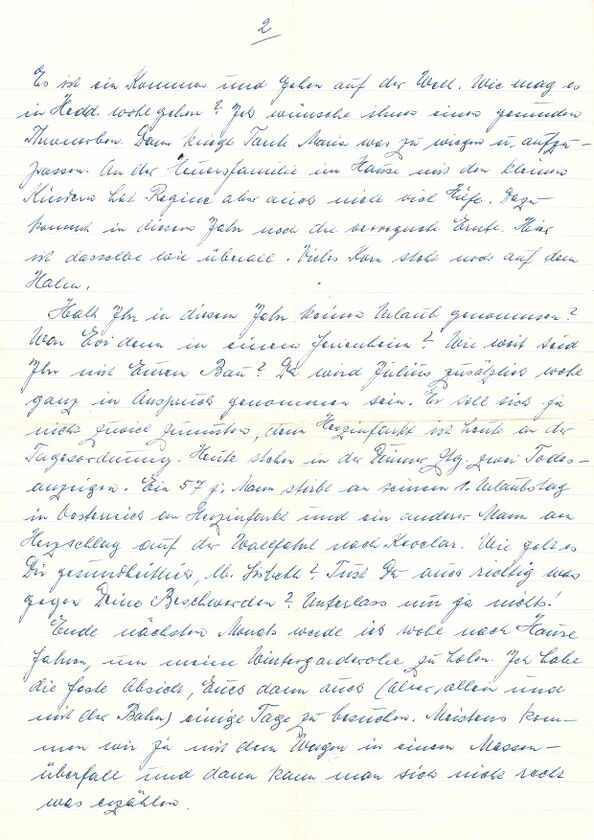 2
Es ist ein Kommen und Gehen auf der Welt. Wie mag es
in Hedd. wohl gehen? Ich wünsche ihnen einen gesunden
Thronerben. Dann kriegt Tante Maria was zu wiegen u. aufzu-
passen. An der Heuersfamilie im Hause mit den kleinen
Kindern hat Regine aber auch nicht viel Hilfe. Dazu
kommt in diesem Jahr noch die verregnete Ernte. Hier
ist dasselbe wie überall. Vieles Korn steht noch auf dem
Halm.
Habt Ihr in diesem Jahr keinen Urlaub genommen?
War Evi denn in einem Ferienheim? Wie weit seid
Ihr mit Eurem Bau? Da wird Julius zusätzlich wohl
ganz in Anspruch genommen sein. Er soll sich ja
nicht zuviel zumuten, denn Herzinfarkt ist heute an der
Tagesordnung. Heute stehen in der Ztg. zwei Todes-
anzeigen. Ein 57 j. Mann stirbt an seinem 1. Urlaubstag
in Oesterreich an Herzinfarkt und ein anderer Mann an
Herzschlag auf der Wallfahrt nach Kevelar. Wie geht es
Dir gesundheitlich, lb. Lisbeth? Tust Du auch richtig was
gegen Deine Beschwerden? Unterlass nur ja nichts!
Ende nächsten Monats werde ich wohl nach Hause
fahren, um meine Wintergarderobe zu holen. Ich habe
die feste Absicht, Euch dann auch (aber, allein und
mit der Bahn) einige Tage zu besuchen. Meistens kom-
men wir ja mit dem Wagen in einem Massen-
überfall und dann kann man sich nicht recht
was erzählen.